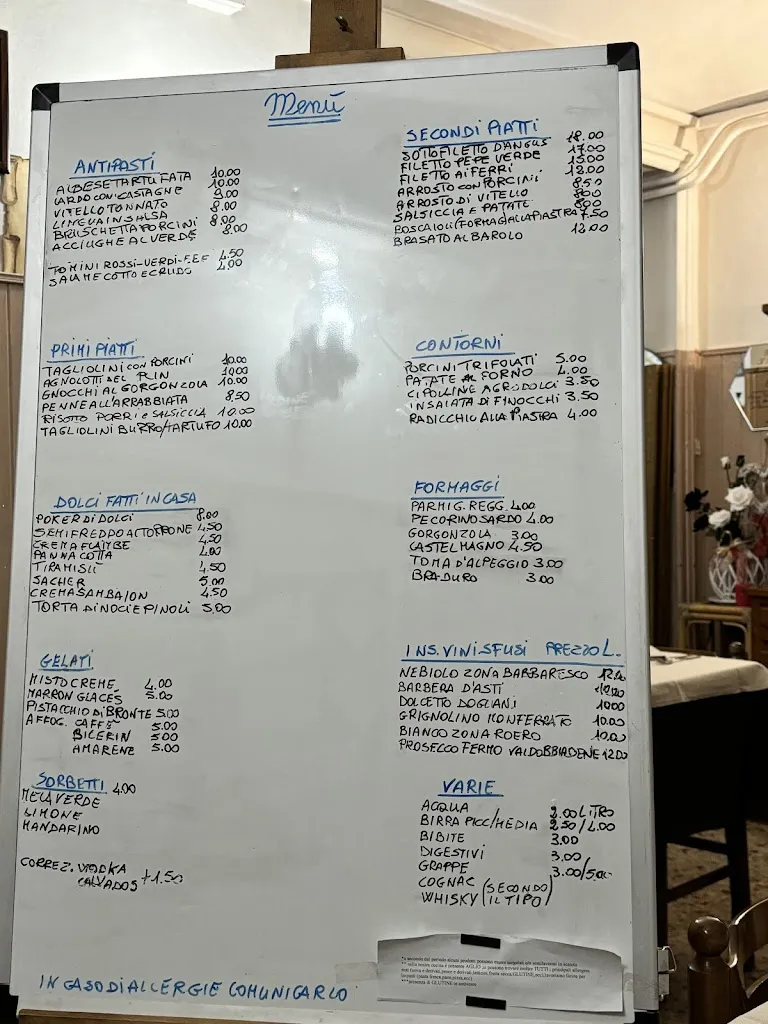 Menù
ANTIPASTI
ALBESE TARTUFATA 10.00
LARDO CON CASTAGNE 10.00
VITELLO TONNATO 9.00
LINGUA IN SALSA 8.00
BRUSCHETTA PORCINI 8.00
ACCIUGHE AL VERDE 8.00
TOMINI ROSSI-VERDI-F.E.F 4.50
SALAME COTTO E CRUDO 4.00
PRIMI PIATTI
TAGLIOLINI CON PORCINI 10.00
AGNOLOTTI DEL PLIN 10.00
GNOCCHI AL GORGONZOLA 10.00
PENNE ALL'ARRABBIATA 8.50
RISOTTO PORRI e SALSICCIA 10.00
TAGLIOLINI BURRO/TARTUFO 10.00
DOLCI FATTI IN CASA
POKER DI DOLCI 8.00
SEMIFREDDO AL TORRONE 4.50
CREMA FLAMBE 4.50
PANNA COTTA 4.00
TIRAMISU 4.50
SACHER 5.00
CREMA SAMBAION 4.50
TORTA DI NOCI E PINOLI 5.00
GELATI
MISTO CREME 4.00
MARRON GLACÉS 5.00
PISTACCHIO DI BRONTE 5.00
AFFOG. CAFFÈ 5.00
BICERIN 5.00
AMARENE 5.00
SORBETTI 4.00
MELA VERDE
LIMONE
MANDARINO
CORREZ. VODKA
CALVADOS +1.50
IN CASO DI ALLERGIE COMUNICARLO
SECONDI PIATTI
SOTTOFILETTO D'ANGUS 18.00
FILETTO PEPE VERDE 17.00
FILETTO AI FERRI 15.00
ARROSTO CON PORCINI 12.00
ARROSTO DI VITELLO 8.50
SALSICCIA E PATATE 8.00
BOSCAIOLI (FORMAG) ALLA PIASTRA 7.50
BRASATO AL BAROLO 12.00
CONTORNI
PORCINI TRIFOLATI 5.00
PATATE AL FORNO 4.00
CIPOLLINE AGRODOLCI 3.50
INSALATA DI FINOCCHI 3.50
RADICCHIO ALLA PIASTRA 4.00
FORMAGGI
PARMIG. REGG. 4.00
PECORINO SARDO 4.00
GORGONZOLA 3.00
CASTELMAGNO 4.50
TOMA D'ALPEGGIO 3.00
BRA DURO 3.00
INS. VINI SFUSI PREZZO L.
NEBIOLO ZONA BARBARESCO 12.00
BARBERA D'ASTI
DOLCETTO DOGLIANI 10.00
GRIGNOLINO MONFERRATO 10.00
BIANCO ZONA ROERO 10.00
PROSECCO FERMO VALDOBBIADENE 12.00
VARIE
ACQUA 2.00 LITRO
BIRRA PICC/MEDIA 2.50/4.00
BIBITE 3.00
DIGESTIVI 3.00
GRAPPE 3.00/5.00
COGNAC (SECONDO
WHISKY IL TIPO)